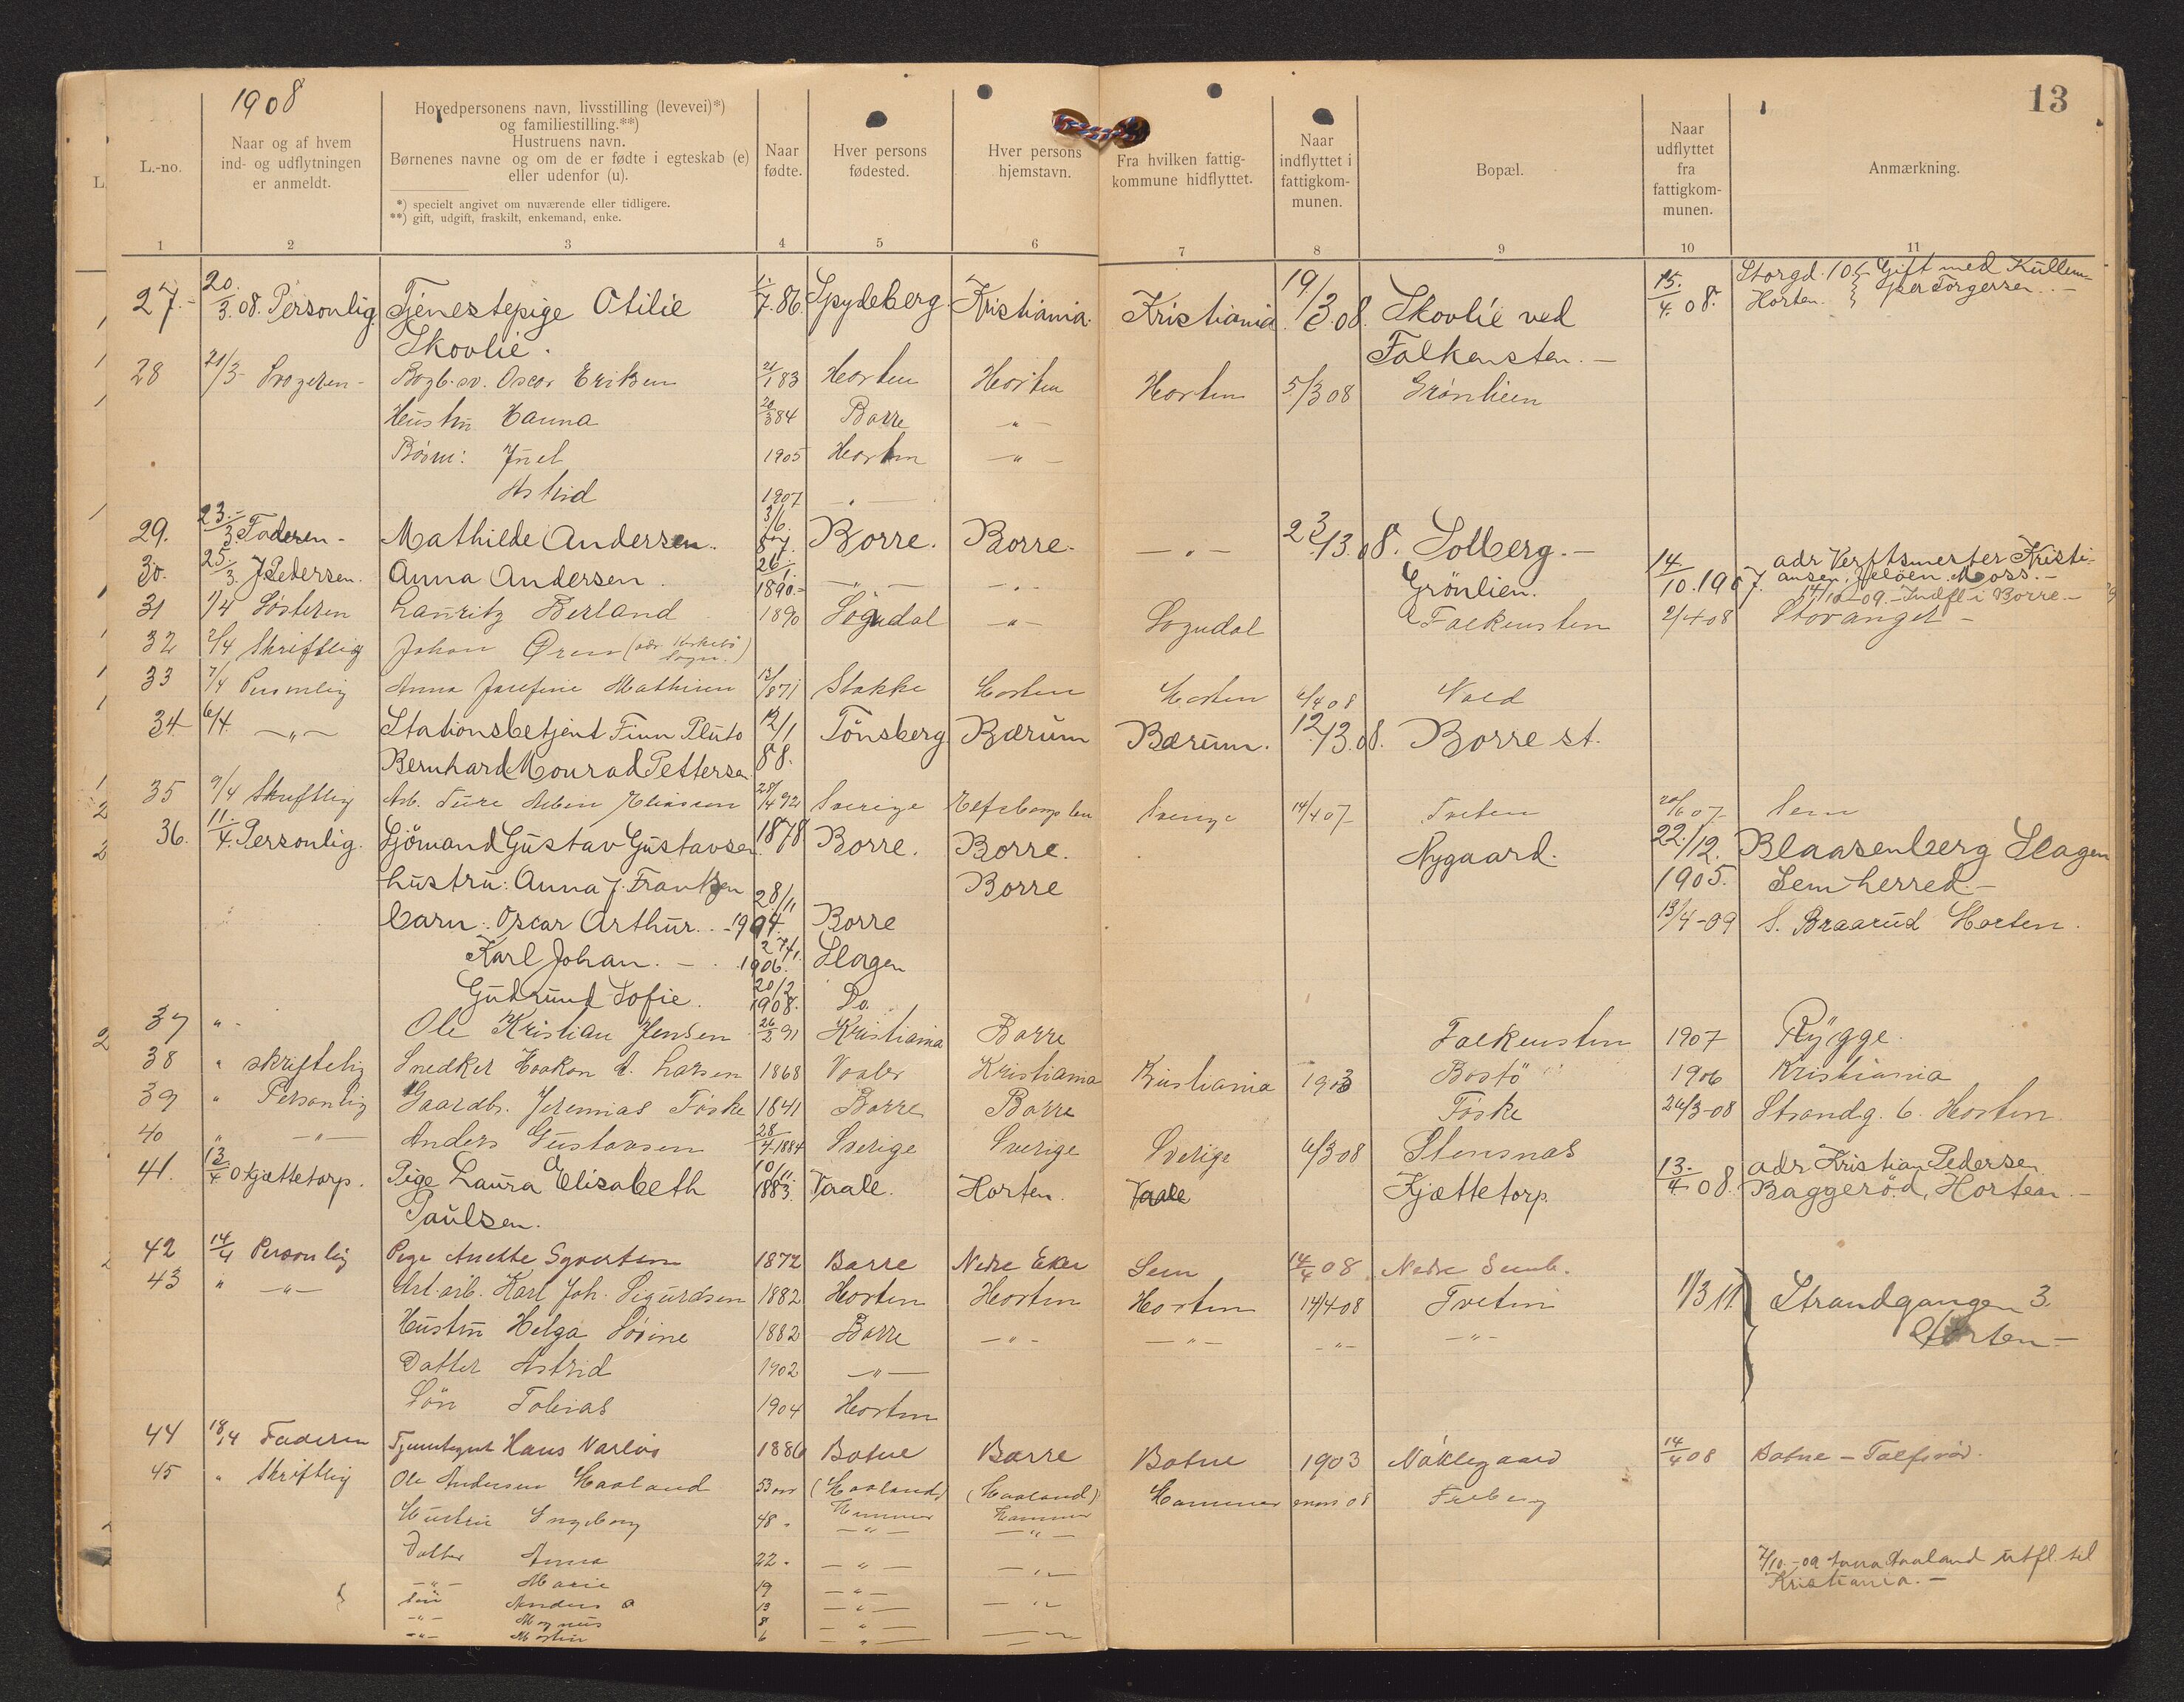 1908
13
L.
L.-no.
Naar og af hvem
ind- og udflytningen
er anmeldt.
Hovedpersonens navn, livsstilling (levevei)*)
og familiestilling.**)
Hustruens navn.
Børnenes navne og om de er fødte i egteskab (e)
eller udenfor (u).
*) specielt angivet om nuværende eller tidligere.
**) gift, udgift, fraskilt, enkemand, enke.
Naar
fødte.
Hver persons
fødested.
Hver persons
hjemstavn.
Fra hvilken fattig-
kommune hidflyttet.
Naar
indflyttet i
fattigkom-
munen.
Bopæl.
Naar
udflyttet
fra
fattigkom-
munen.
Anmærkning.
1 2 3 4 5 6 7 8 9 10 11
27. 20/3.08. Personlig. Tjenestepige Otilie 1/7.86. Spydeberg. Kristiania. Kristiania. 19/3.08. Skovlie ved 15./4.08. Storgd. 105 Gift med Kullem-
Skovlie. Falkensten. Horten. Torgersen.
28 21/3 Svogeren Oscar Eriksen 83 Horten Horten Horten 5/3 08 Grönlien
Hustru Hanna 20/3 84 Borre "
Börn: Juel 1905 Horten "
Astrid 1907 "
29. 23./3. Faderen Mathilde Andersen. 3/6. 87. Borre. Borre. " 23/3.08. Solberg.
30. 25/3. J Pedersen. Anna Andersen. 26/1. 1890. " " Grönlien. 14/10.1907. adr Verftsmester Kristi-
ansen, Jelöen. Moss.
14/10-09. Indfl i Borre.
31 1/4 Søsteren Lauritz Berland 1890 Sogndal " Sogndal Falkensten 2/4 08 Stavanger
32 2/4 Skriftlig Johan Ören
33 7/4 Personlig Anna Josefine Mathisen 12/1 871 Stokke Horten Horten 6/4 08 Vold
34 6/4. " Stationsbetjent Finn Pluto 12/1 Tönsberg Bærum Bærum. 12/3.08. Borre st.
Bernhard Monrad Pettersen 88.
35 9/4 Skriftlig Arb. Ture Eliassen 28/4 92 Sverige Sverige 14/4 07 Tveten 07 Sem
36. 11./4. Personlig. Sjömand Gustav Gustavsen. 1878 Borre. Borre. Nygaard. 22./12. Blaasenberg Slagen
hustru: Anna J. Frantzen Borre 1905. Sem herred.
barn: Oscar Arthur. 28/11 1904. Borre 13/4-09 S. Braarud Horten.
Karl Johan. 27/1. 1906. Slagen
Gudrund Sofie. 20/2 1908. Do.
37 " Ole Kristian Jensen 26/2 91 Kristiania Borre Falkensten 1907 Rygge.
38 " skriftelig Snedker Haakon A. Larsen 1868 Vaaler Kristiania Kristiania 1903 Bastö 1906 Kristiania
39 " Personlig Gaardbr. Jeremias Föske 1841 Borre Borre Föske 26/3-08 Strandg. 6. Horten.
40 " " Anders Gustavsen 28/4 1884 Sverige Sverige Sverige 6/3 08 Stensnas
41. 13/4 O Kjættetorp. Pige Laura Elisabeth 10/11. 1883. Vaale. Horten. Vaale Kjættetorp. 13./4 08. adr Kristian Pedersen.
Paulsen. Baggeröd, Horten.
42 14/4 Personlig Pige Anette Syvertsen 1872 Borre Nedre Eker Sem 14/4 08 Nedre Semb.
43 " " Art. arb. Karl Joh. Sigurdsen 1882 Horten Horten Horten 14/4 08 Tveten 1/3 11. Strandgangen 3.
Hustru Helga Lovine 1882 Borre " " " " Horten
Datter Astrid 1902 "
Sön Tobias 1904 Horten
44 18/4 Faderen Hans Varlös 1886 Botne Borre Botne 1903 Nöklegaard 14/4 08 Botne
45 " Skriftlig Ole Andersen Haaland 53 aar (Haaland) (Haaland) Hammer mars 08 Freberg
Hustru Ingeborg 48 " Hammer Hammer
Datter Anna 22 " " "
" Marie 19 " "
Sön Anders O 13 " "
" Magnus 8 "
" Martin 6 " "
7/10.-09 Anna Haaland utfl. til
Kristiania.